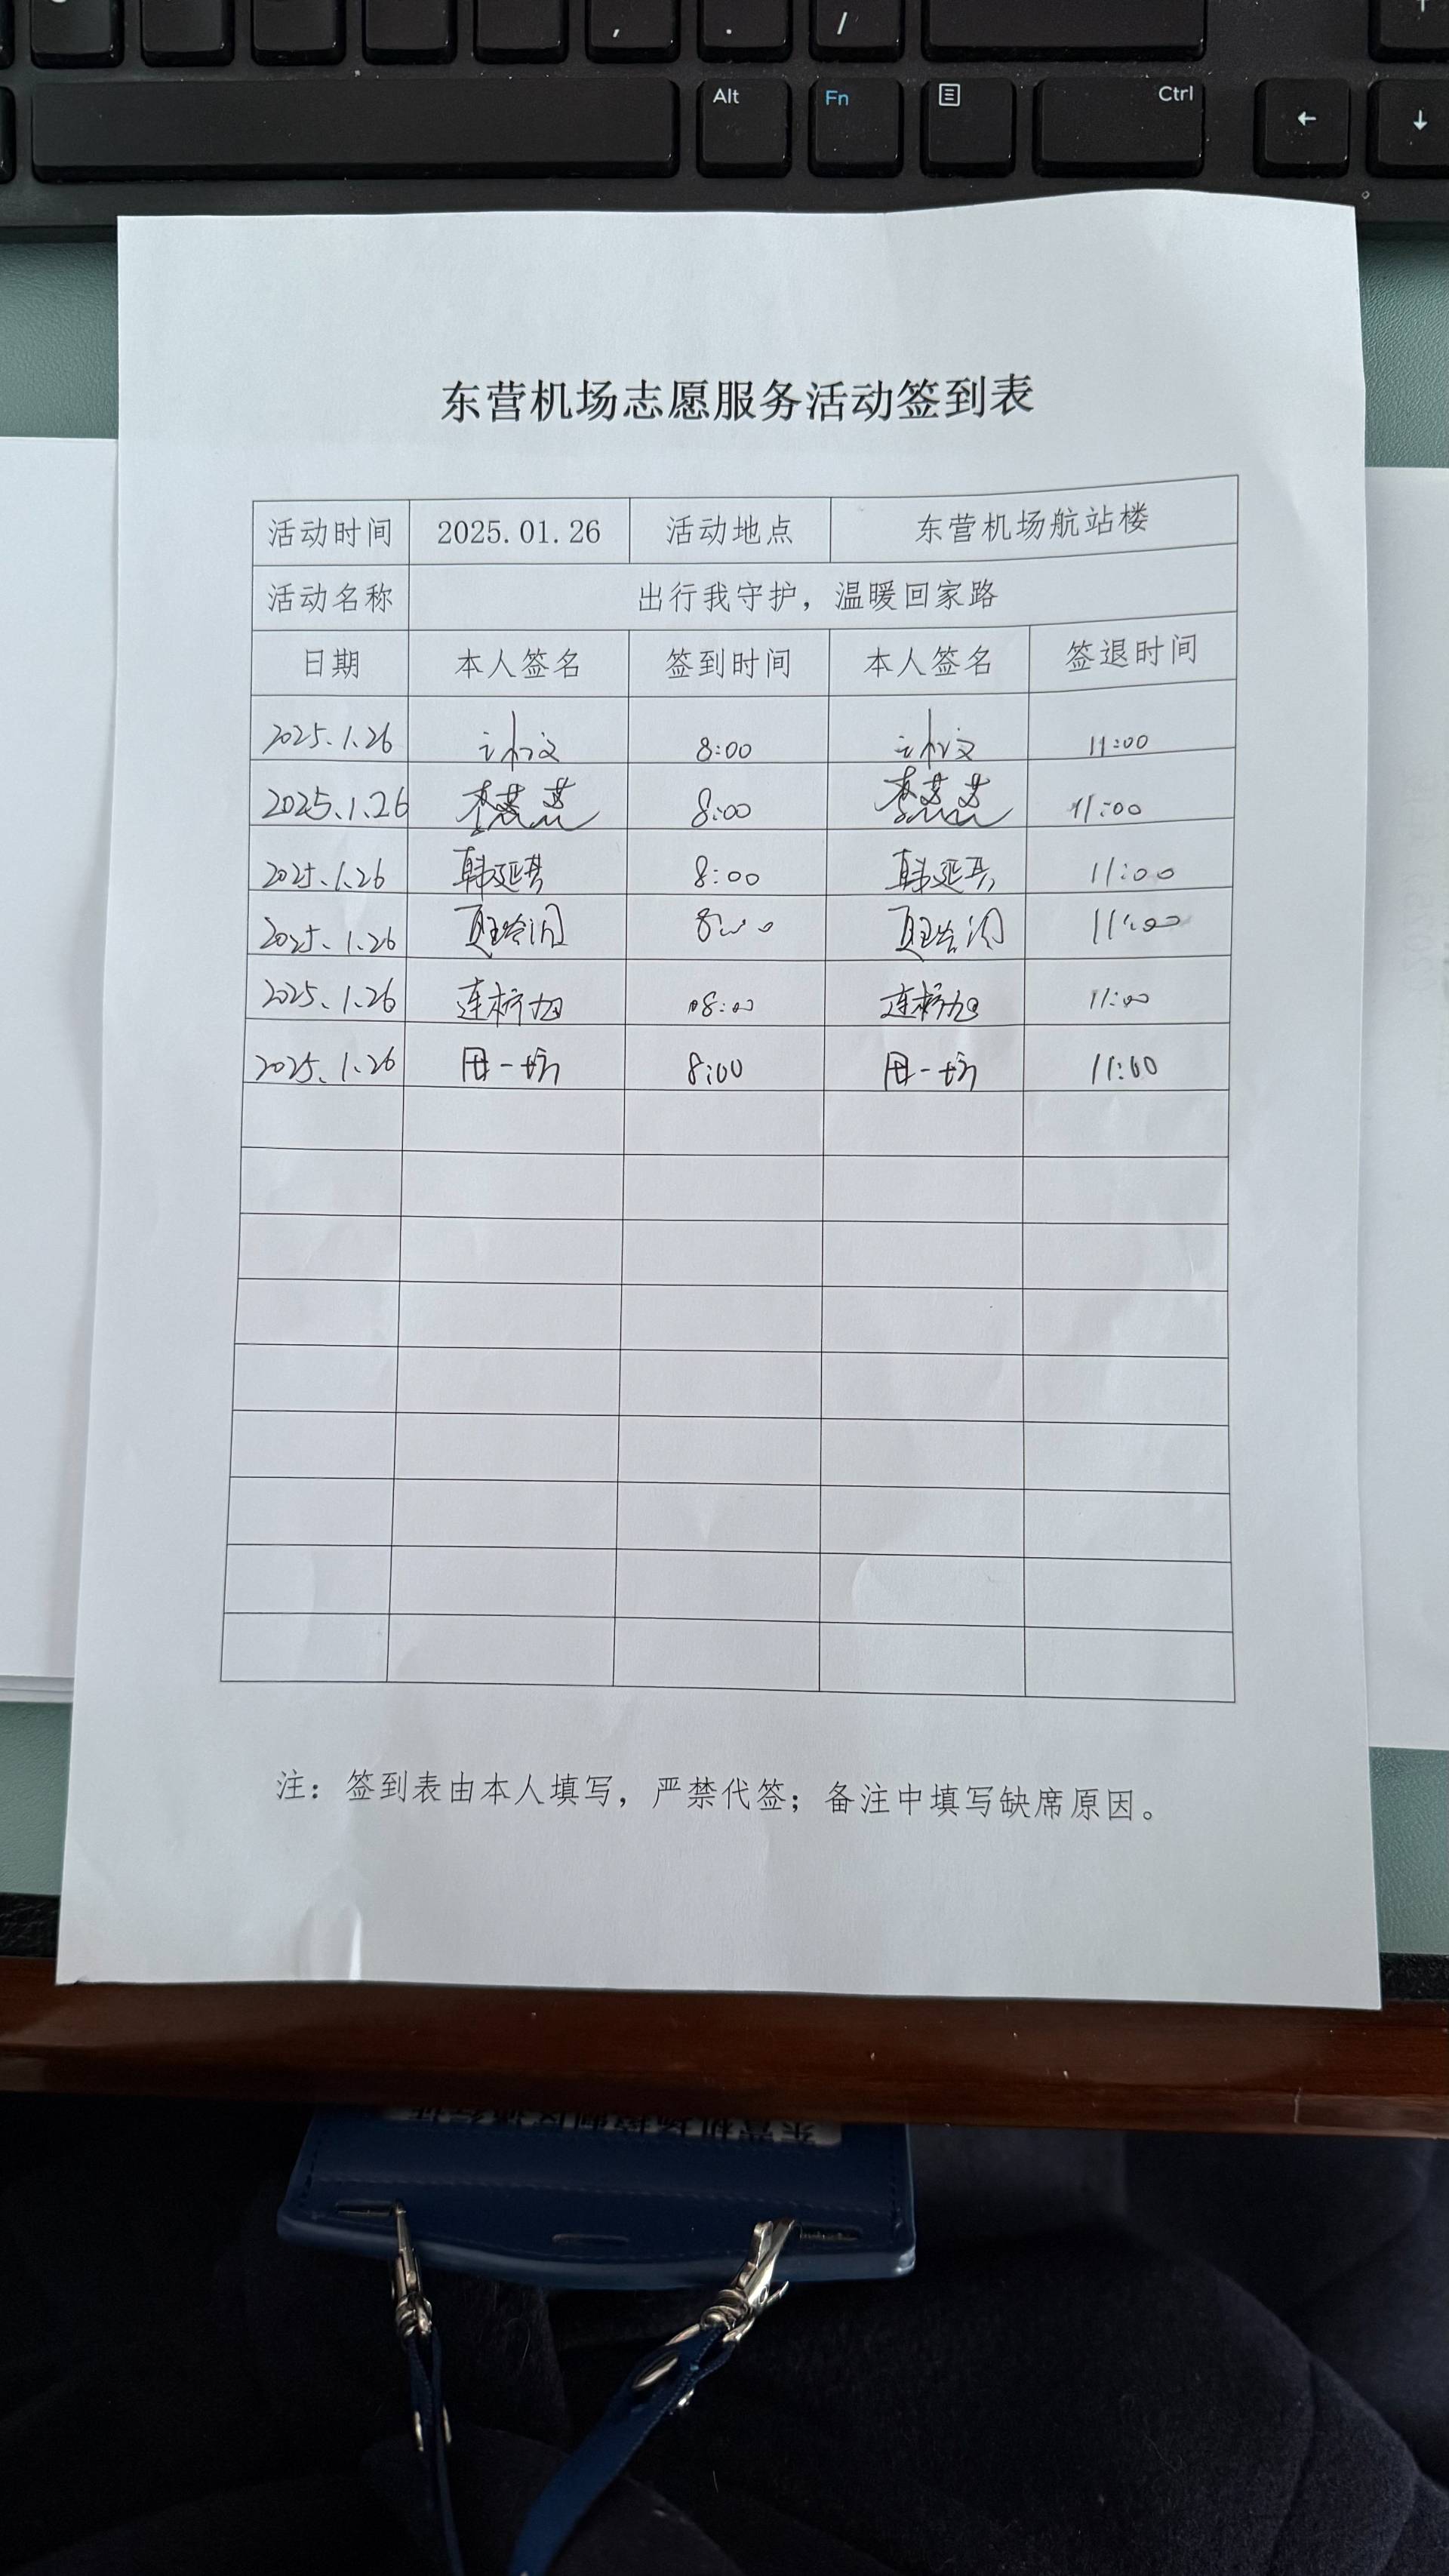 , . /
Alt Fn Ctrl ← ↓
东营机场志愿服务活动签到表
活动时间 2025.01.26 活动地点 东营机场航站楼
活动名称 出行我守护，温暖回家路
日期 本人签名 签到时间 本人签名 签退时间
2025.1.26 8:00 11:00
2025.1.26 李燕燕 8:00 李燕燕 11:00
2025.1.26 韩延 8:00 韩延 11:00
2025.1.26 8:00 11:00
2025.1.26 连 旭 08:00 连 旭 11:00
2025.1.26 田一 8:00 田一 11:00
注：签到表由本人填写，严禁代签；备注中填写缺席原因。
东营机场控制区通行证